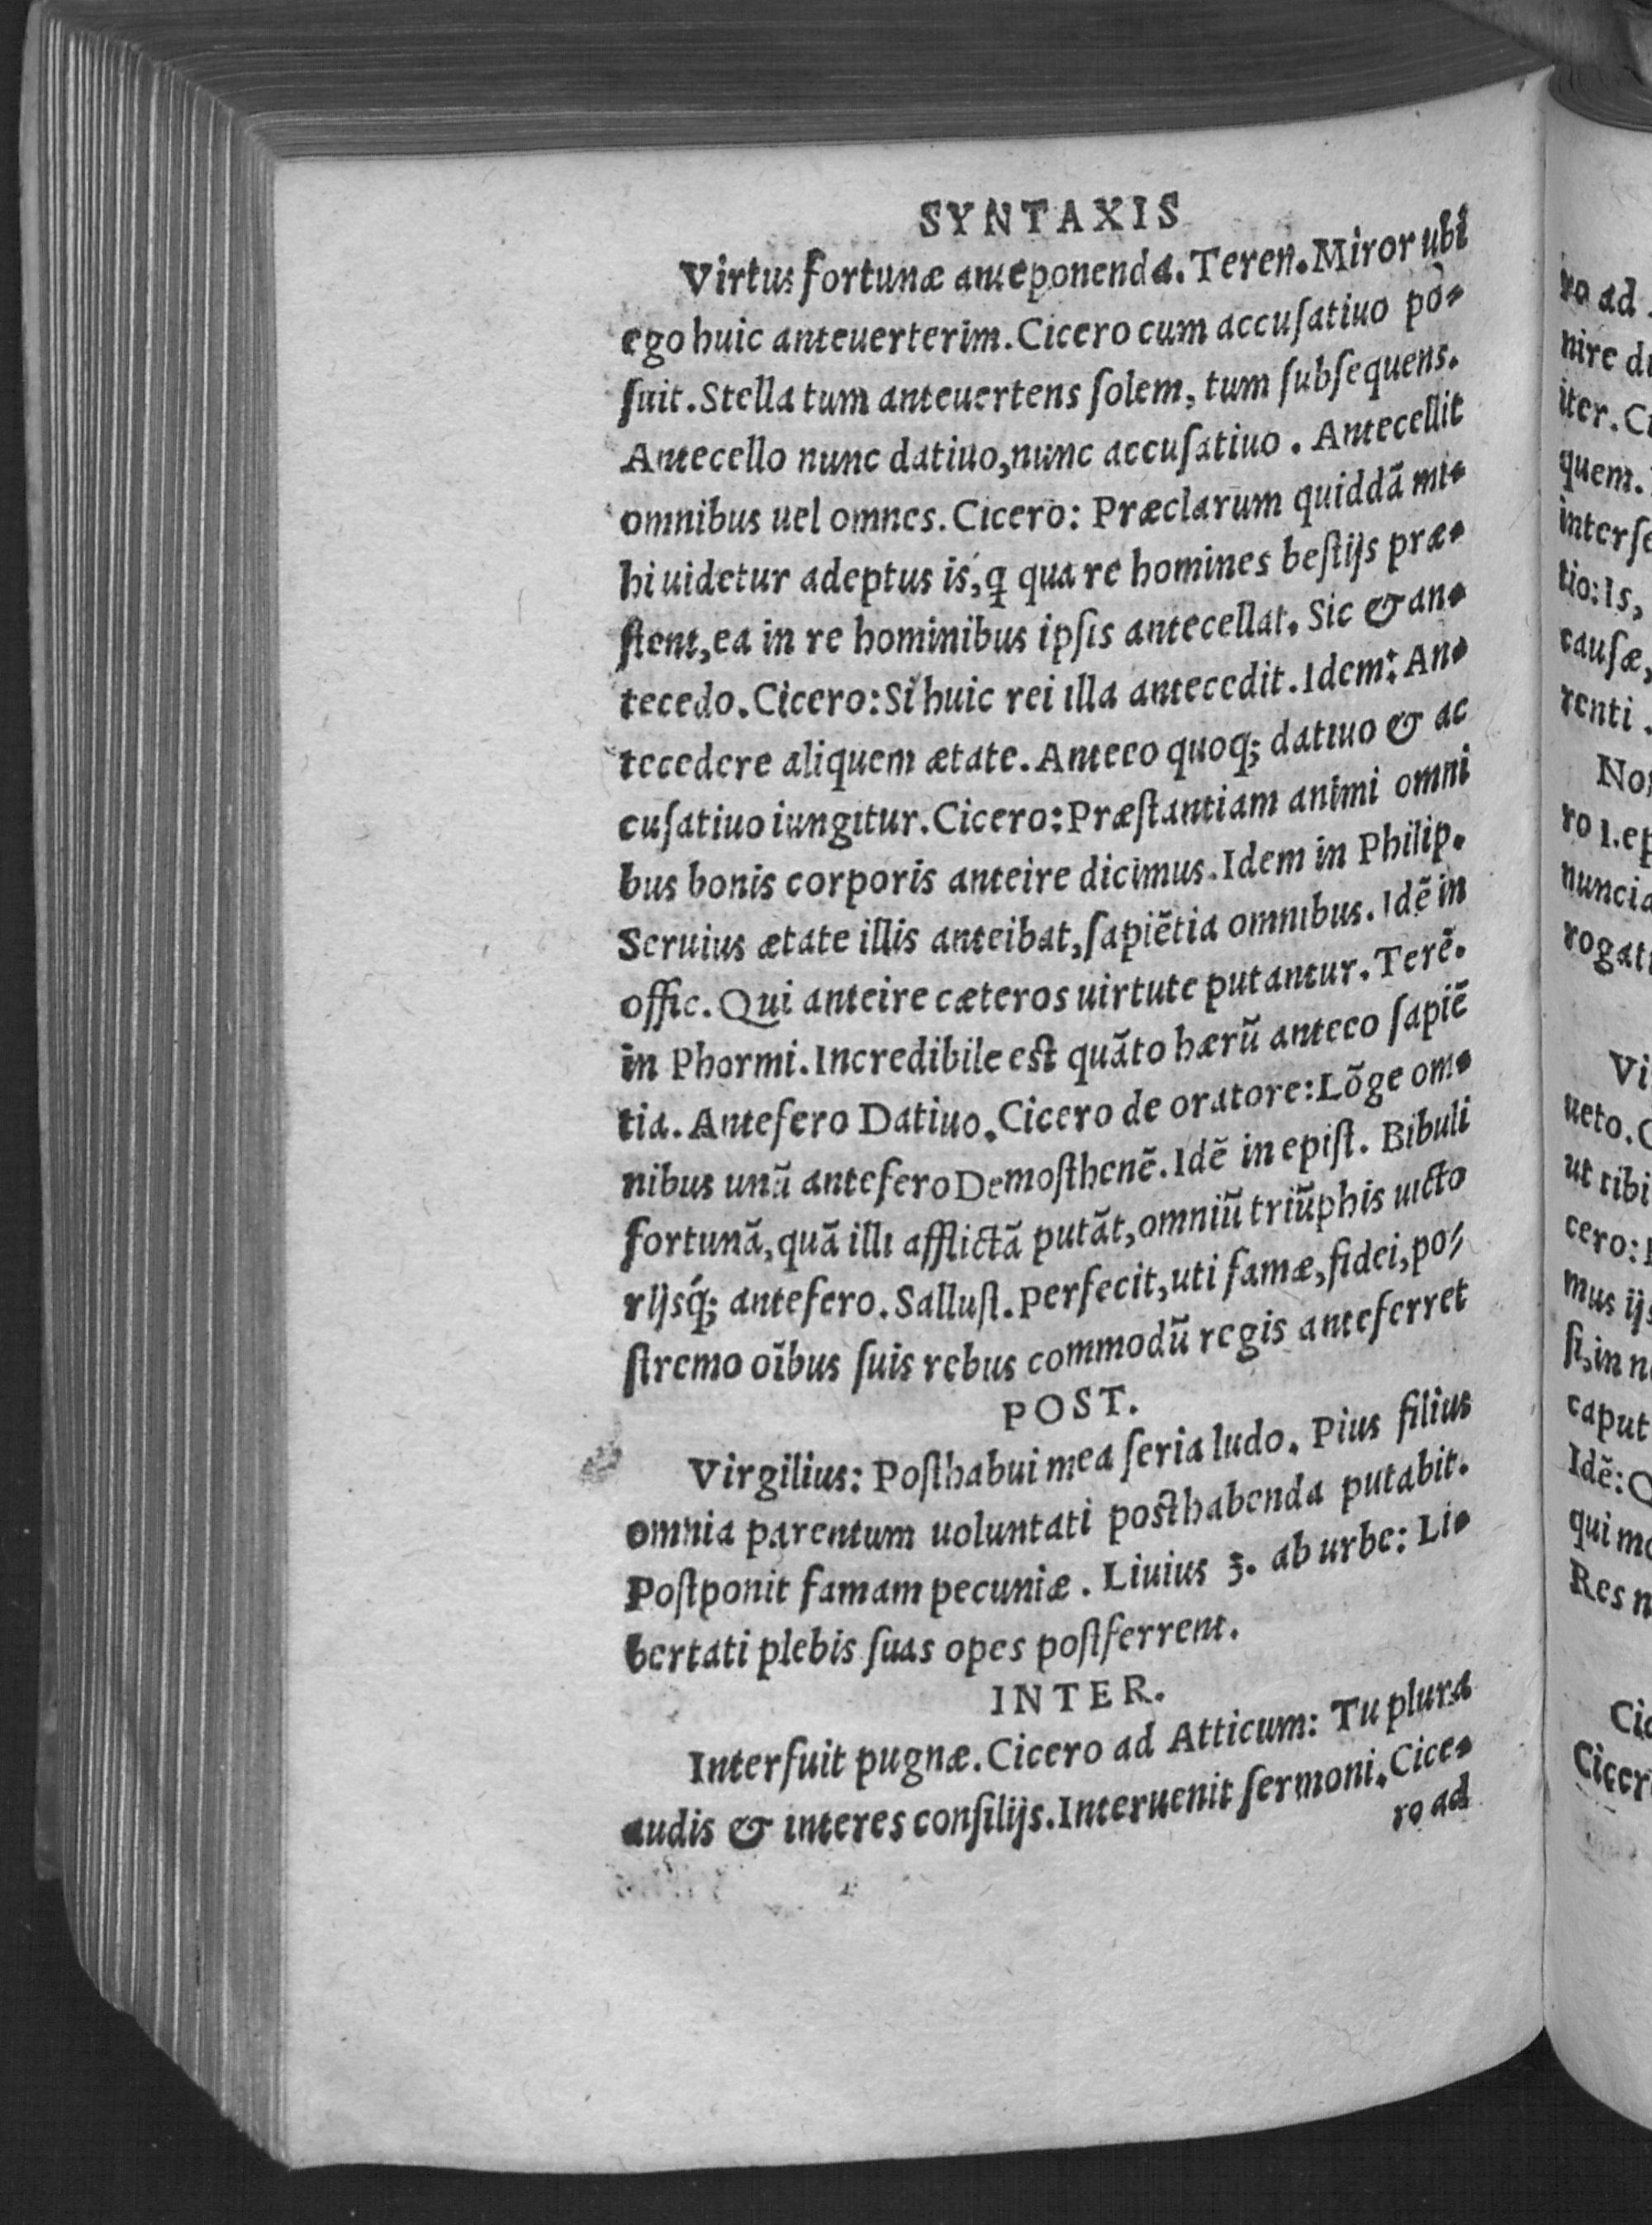 SYNTAXIS
Virtus fortunæ anteponenda. Teren. Miror ubi
ego huic anteuerterim. Cicero cum accuſatiuo po-
ſuit. Stella tum anteuertens ſolem, tum ſubſequens.
Antecello nunc datiuo, nunc accuſatiuo. Antecellit
omnibus uel omnes. Cicero: Præclarum quiddã mi-
hi uidetur adeptus is, ꝙ qua re homines beſtijs præ-
ſtent, ea in re hominibus ipſis antecellat. Sic & an-
tecedo. Cicero: Si huic rei illa antecedit. Idem: An-
tecedere aliquem ætate. Anteeo quoq; datiuo & ac
cuſatiuo iungitur. Cicero: Præſtantiam animi omni
bus bonis corporis anteire dicimus. Idem in Philip.
Seruius ætate illis anteibat, ſapiẽtia omnibus. Idẽ in
offic. Qui anteire cæteros uirtute putantur. Terẽ.
in Phormi. Incredibile eſt quãto hærũ anteeo ſapiẽ
tia. Antefero Datiuo. Cicero de oratore: Lõge om-
nibus unũ antefero Demoſthenẽ. Idẽ in epiſt. Bibuli
fortunã, quã illi afflictã putãt, omniũ triũphis uicto
rijsq́; antefero. Salluſt. Perfecit, uti famæ, fidei, po-
ſtremo oĩbus ſuis rebus commodũ regis anteferret
POST.
Virgilius: Poſthabui mea ſeria ludo. Pius filius
omnia parentum uoluntati poſthabenda putabit.
Poſtponit famam pecuniæ. Liuius 3. ab urbe: Li-
bertati plebis ſuas opes poſtferrent.
INTER.
Interfuit pugnæ. Cicero ad Atticum: Tu plura
audis & interes conſilijs. Interuenit ſermoni. Cice-
ro ad
ro ad
nire
iter.
quem.
interſe
tio: Is,
cauſæ,
renti.
ro 1.
nuncia
rogat
ueto.
ut tibi
cero:
mus ijs
ſi, in
caput
Idẽ:
qui
Res